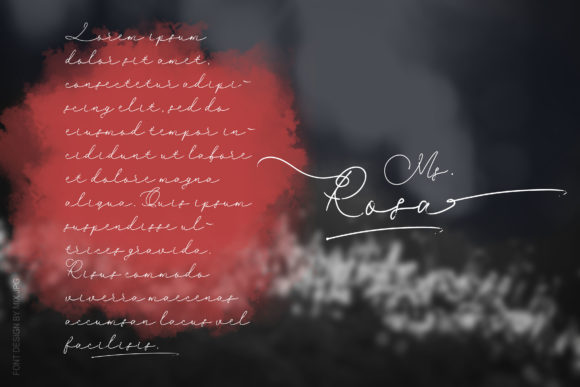 Lorem ipsum
dolor sit amet,
consectetur adipi-
scing elit, sed do
eiusmod tempor in-
cididunt ut labore
et dolore magna
aliqua. Quis ipsum
suspendisse ul-
trices gravida.
Risus commodo
viverra maecenas
accumsan lacus vel
facilisis.
Ms.
Rosa
FONT DESIGN BY UXJPG